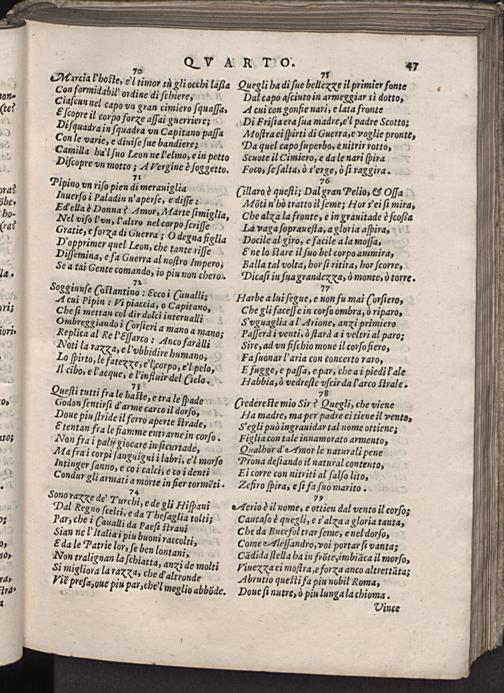 QVARTO.
47
70
Marcia l'hoste, e'l timor sù gli occhi lassa
Con formidabil' ordine di schiere,
Ciascun nel capo vn gran cimiero squassa,
E scopre il corpo forze assai guerriere;
Di squadra in squadra vn Capitano passa
Con le varie, e diuise sue bandiere;
Camilla ha'l suo Leon ne l'elmo, e in petto
Discopre vn motto; A Vergine è soggetto.
71
Pipino vn riso pien di merauiglia
Inuerso i Paladin n'aperse, e disse:
Ed'ella è Donna? Amor, Marte simiglia,
Nel viso l'vn, l'altro nel corpo scrisse
Gratie, e forza di Guerra; O degna figlia
D'opprimer quel Leon, che tante risse
Dissemina, e fa Guerra al nostro Impero;
Se a tai Gente comando, io piu non chero.
72
Soggiunse Costantino: Ecco i Caualli;
A cui Pipin: Vi piaccia, o Capitano,
Che si mettan col dir dolci interualli
Ombreggiando i Corsieri a mano a mano;
Replica al Re l'Essarco: Anco faralli
Noti la razza, e l'vbbidire humano,
Lo spirto, le fatezze, e'l corpo, e'l pelo,
Il cibo, e l'acque, e l'influir del Cielo.
73
Questi tutti fra le haste, e tra le spade
Godon sentirsi d'arme carco il dorso,
Doue piu stride il ferro aperte strade,
E tentan fra le fiamme entrarne in corso.
Non fra i palij giocare in sicurtade,
Ma fra i corpi sanguigni i labri, e'l morso
Intinger sanno, e co i calci, e co i denti
Condur gli armati a morte in fier tormēti.
74
Sono razze de' Turchi, e de gli Hispani
Dal Regno scelti, e da Thesaglia tolti;
Par, che i Caualli da Paesi strani
Sian ne l'Italia i piu buoni raccolti,
E da le Patrie lor, se ben lontani,
Non tralignan la schiatta, anzi de molti
Si migliora la razza, che d'altronde
Viē presa, oue piu par, che'l meglio abbōde.
75
Quegli ha di sue bellezze il primier fonte
Dal capo asciuto in armeggiar sì dotto,
A cui con gonfie nari, e lata fronte
Di Frisia era sua madre, e'l padre Scotto;
Mostra ei spirti di Guerra, e voglie pronte,
Da quel capo superbo, e nitrir rotto,
Scuote il Cimiero, e da le nari spira
Foco, se salta, ò s'erge, ò si raggira.
76
Cillaro è questi; Dal gran Pelio, & Ossa
Mōti n'hò tratto il seme; Hor s'ei si mira,
Che alza la fronte, e in grauitade è scossa
La vaga soprauesta, a gloria aspira,
Docile al giro, e facile a la mossa,
E ne lo stare il suo bel corpo ammira,
Balla tal volta, hor si ritira, hor scorre,
Dicasi in sua grandezza, ò monte, ò torre.
77
Harbe a lui segue, e non fu mai Corsiero,
Che gli facesse in corso ombra, ò riparo,
S'vguaglia a l'Arione, anzi primiero
Passerd i venti, ò starà a i veltri al paro;
Sire, ad vn fischio moue il corso fiero,
Fa suonar l'aria con concerto raro,
E fugge, e passa, e par, che a i piedi l'ale
Habbia, ò vedreste vscir da l'arco strale.
78
Credereste mio Sir è Quegli, che viene
Ha madre, ma per padre ei tiene il vento,
S'egli può ingrauidar tal nome ottiene;
Figlia con tale innamorato armento,
Qualhor d'Amor le naturali pene
Proua desiando il natural contento,
Ei corre con nitriti al salso lito,
Zefiro spira, e si fa suo marito.
79
Aerio è il nome, e ottien dal vento il corso;
Caucaso è quegli, e s'alza a gloria tanta,
Che da Bucefol trar seme, e nel dorso,
Come Alessandro, voi portar si vanta;
Cādida stella ha in frōte, imbiāca il morso,
Viuezza ei mostra, e forza anco altrettāta;
Abrutio questi fa piu nobil Roma,
Doue si nutre, ò piu lunga la chioma.
Vince